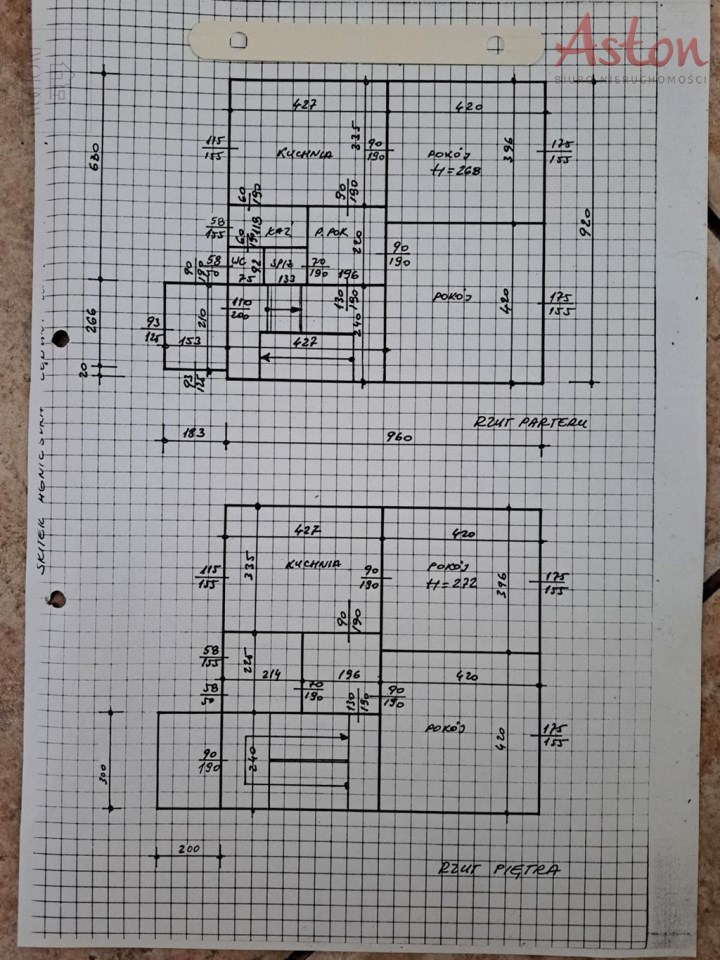 Aston
BIURO NIERUCHOMOŚCI
427
420
630
115
155
KUCHNIA
335
90
190
POKÓJ
H=268
396
175
155
60
190
90
190
920
58
155
118
60
190
ŁAZ
P.POK
220
90
190
58
WC
92
SPIŻ
70
190
90
190
75
133
196
POKÓJ
420
175
155
266
93
125
210
110
200
130
190
240
153
427
20
93
125
RZUT PARTERU
183
960
427
420
115
155
335
KUCHNIA
90
190
POKÓJ
H=272
396
175
155
90
190
58
155
225
214
196
420
58
70
190
130
190
90
190
POKÓJ
420
175
155
300
90
190
240
200
RZUT PIĘTRA